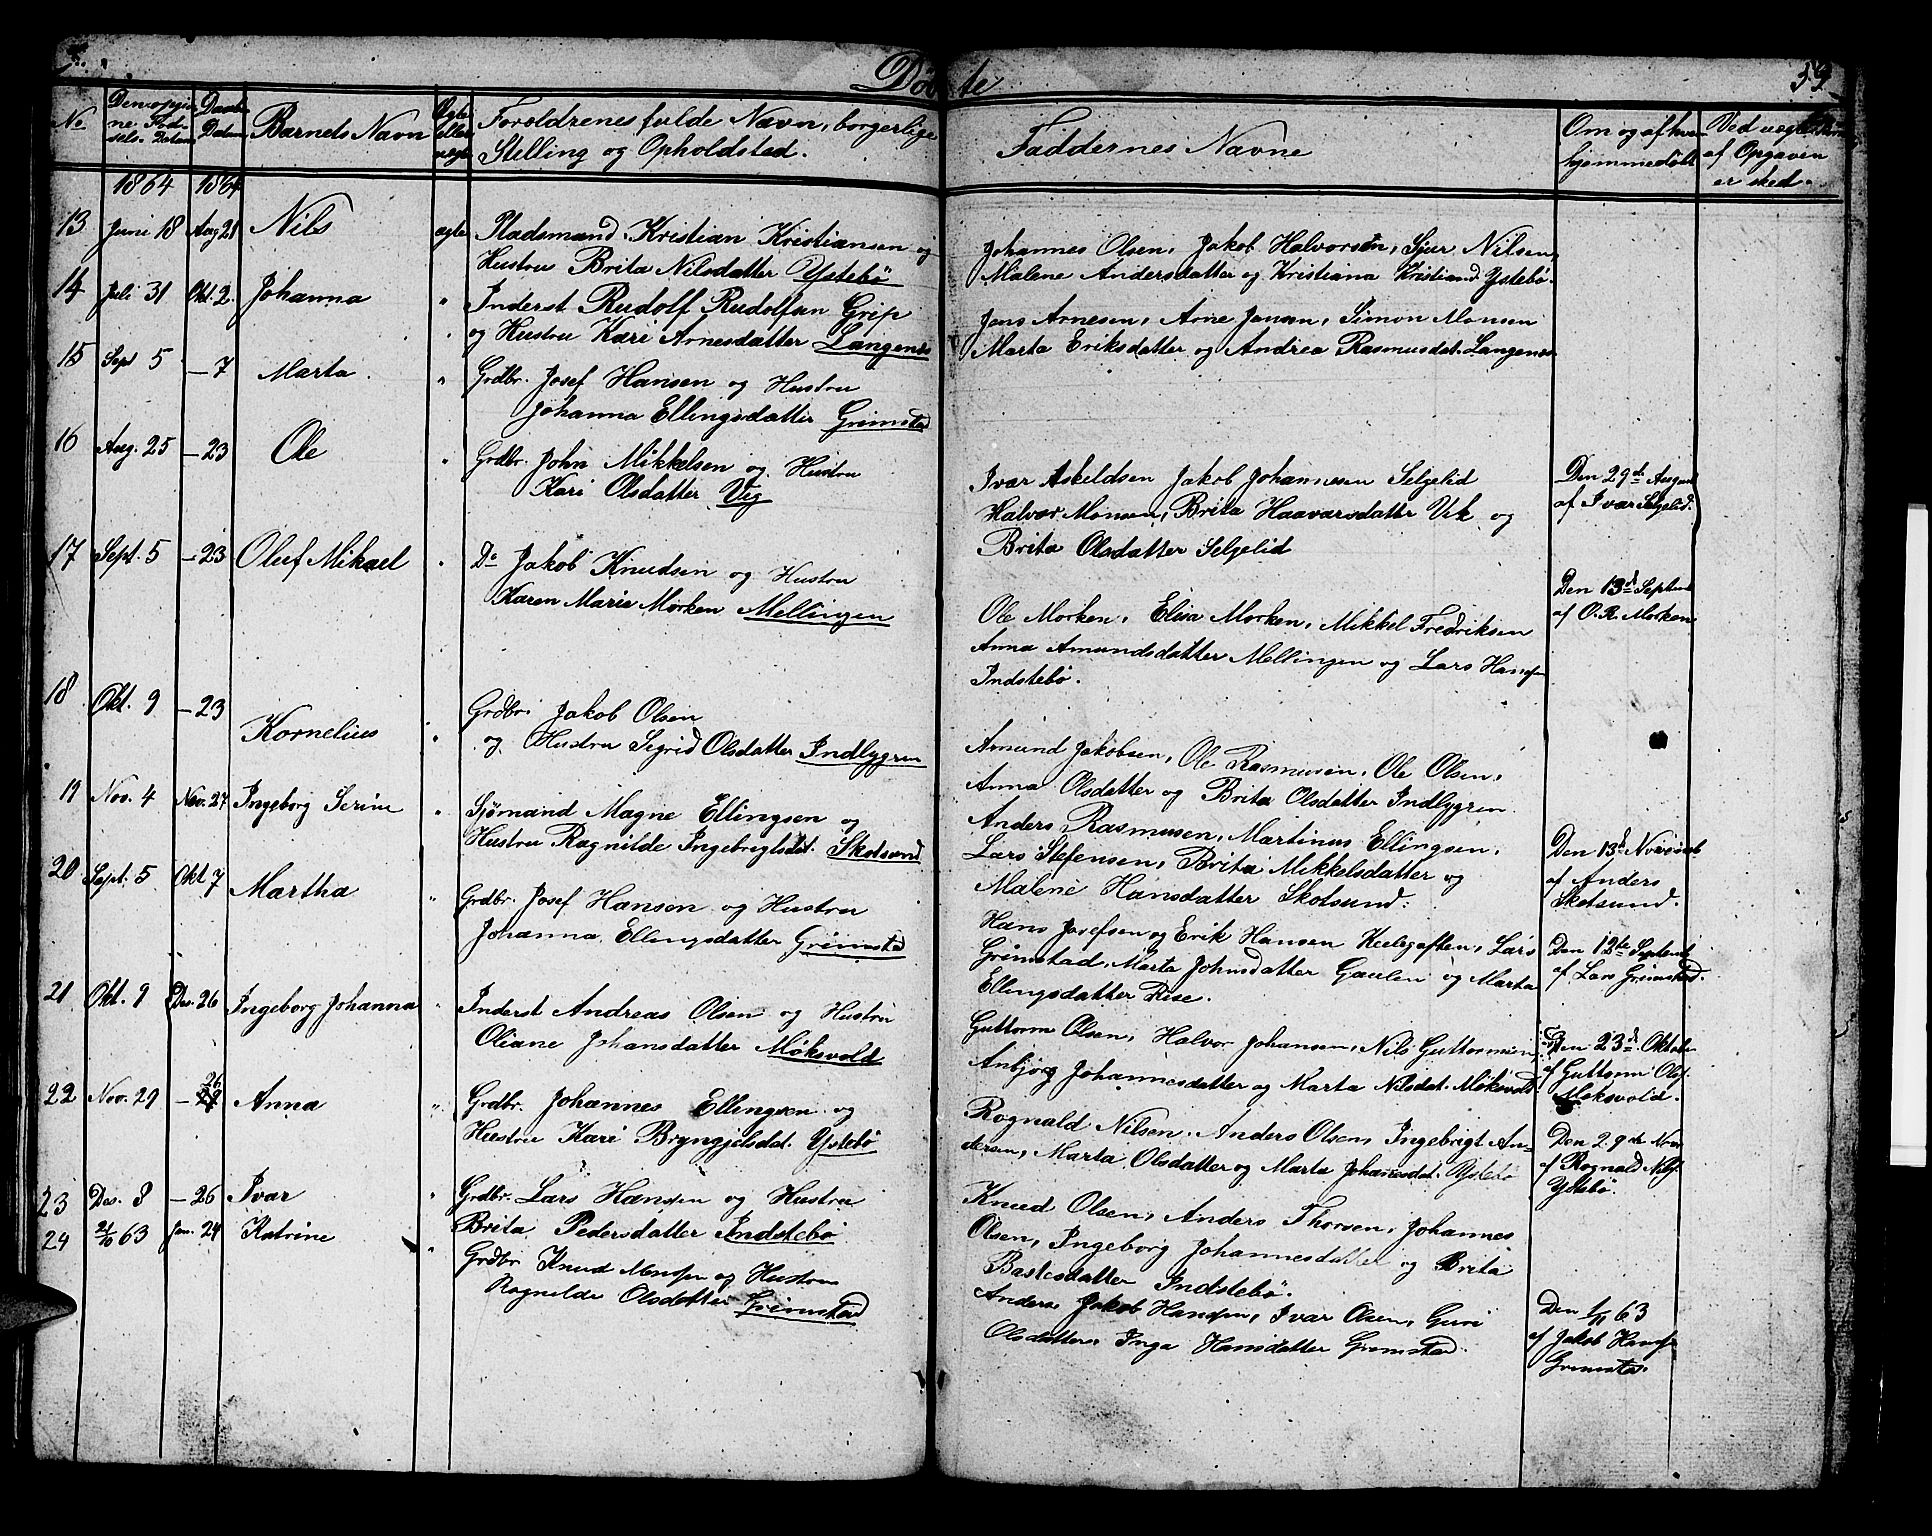 Døbte
53
No
Den opgivne Fødsels-Datum
Daabs Datum
Barnets Navn
Ægte eller uægte
Forældrenes fulde Navn, borgerlige
Stilling og Opholdsted.
Faddernes Navne
Om og af hvem
hjemmedøbt
Ved uægte
af Opgaven
er sked.
1864 1864
13 Juni 18 Aug 21 Nils ægte Pladsmand Kristian Kristiansen og
Hustru Brita Nilsdatter Ystebø
Johannes Olsen, Jakob Halvorsen, Sjur Nilsen,
Malene Andersdatter og Kristiana Kristiansd. Ystebø.
14 Juli 31 Okt. 2. Johanna " Inderst Rudolf Rudolfsen Grip
og Hustru Kari Arnesdatter Langenes
Jens Arnesen, Arne Jensen, Simon Monsen
Marta Eriksdatter og Andrea Rasmusdat. Langenes
15 Sept 5 — 7 Marta. " Grdbr. Josef Hansen og Hustru
Johanna Ellingsdatter Grimstad
16 Aug. 25 — 23 Ole " Grdbr. John Mikkelsen og Hustru
Kari Olsdatter Vig
Ivar Askeldsen Jakob Johannesen Selgelid
Halvor Monsen, Brita Haavarsdatter Vik og
Brita Olsdatter Selgelid
Den 29de August
af Ivar Selgelid.
17 Sept. 5 — 23 Oluf Mikael " Do Jakob Knudsen og Hustru
Karen Marie Morken Mellingen
Ole Morken, Elisa Morken, Mikkel Fredriksen
Anna Amundsdatter Mellingen og Lars Hansen
Indstebø.
Den 13d Septem
af O. R. Morken
18 Okt. 9 — 23 Kornelius " Grdbr. Jakob Olsen
og Hustru Sigrid Olsdatter Indlygren
Amund Jakobsen, Ole Rasmusen, Ole Olsen,
Anna Olsdatter og Brita Olsdatter Indlygren
19 Nov. 4 Nov. 27 Ingeborg Serine " Sjømand Magne Ellingsen og
Hustru Ragnilde Ingebrigtsdat. Skotsund
Anders Rasmusen, Martinus Ellingsen,
Lars Stefensen, Brita Mikkelsdatter og
Malene Hansdatter Skotsund.
Den 13d Novemb
af Anders
Skotsund.
20 Sept. 5 Okt 7 Martha " Grdbr. Josef Hansen og Hustru
Johanna Ellingsdatter Grimstad
Hans Josefsen og Erik Hansen, Lars
Grimstad, Marta Johnsdatter Gaulen og Marta
Ellingsdatter Rise.
Den 12te Septemb
af Lars Grimstad.
21 Okt. 9 Des. 26 Ingeborg Johanna " Inderst Andreas Olsen og Hustru
Oliane Johansdatter Møksvold
Guttorm Olsen, Halvor Johansen, Nils Guttormsen
Anbjørg Johannesdatter og Marta Nilsdat. Møksvold
Den 23d Oktobe
af Guttorm Ols.
Møksvold.
22 Nov. 29 — 26 Anna " Grdbr. Johannes Ellingsen og
Hustru Kari Bryngjelsdat. Ystebø
Rognald Nilsen, Anders Olsen, Ingebrigt An-
dersen, Marta Olsdatter og Marta Johannesdat. Ystebø
Den 29de Nov
af Rognald Nils.
Ystebø.
23 Des. 8 — 26 Ivar " Grdbr. Lars Hansen og Hustru
Brita Pedersdatter Indstebø
Knud Olsen, Anders Thorsen, Johannes
Olsen, Ingeborg Johannesdatter og Brita
Bastesdatter Indstebø.
24 21/10 63 Jan. 24 Katrine " Grdbr Knud Monsen og Hustru
Rognilde Olsdatter Grimstad
Anders, Jakob Hansen, Ivar Olsen, Guri
Olsdatter, Inga Hansdatter Grimstad.
Den 1/11 63
af Jakob Hans.
Grimstad.